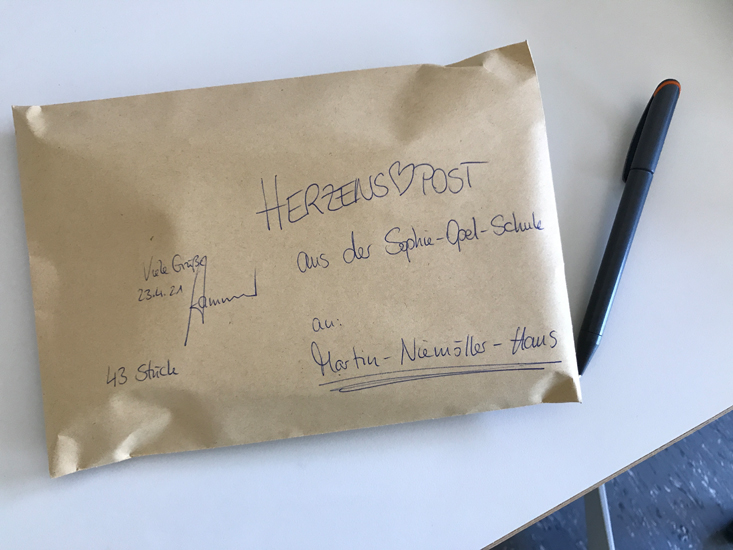 HERZENS♡POST
aus der Sophie-Opel-Schule
an:
Martin-Niemöller-Haus
Viele Grüße
23.4.21
43 Stück